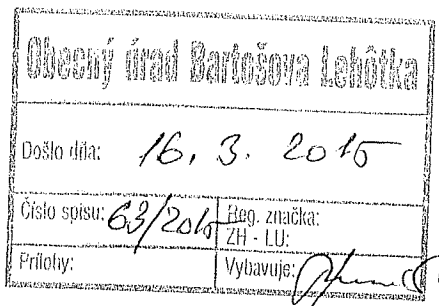 Obecný úrad Bartošova Lehôtka
Došlo dňa: 16. 3. 2015
Číslo spisu: 63/2015
Reg. značka:
ZH - LU:
Prílohy:
Vybavuje: